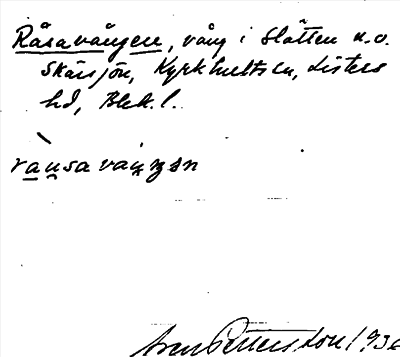 Råsavången, vång i Slätten n.v.
Skärsjön, Kyrkhults sn, Listers
hd, Blek. l.
ràu̯savaŋ̍ən
Pettersson 1936